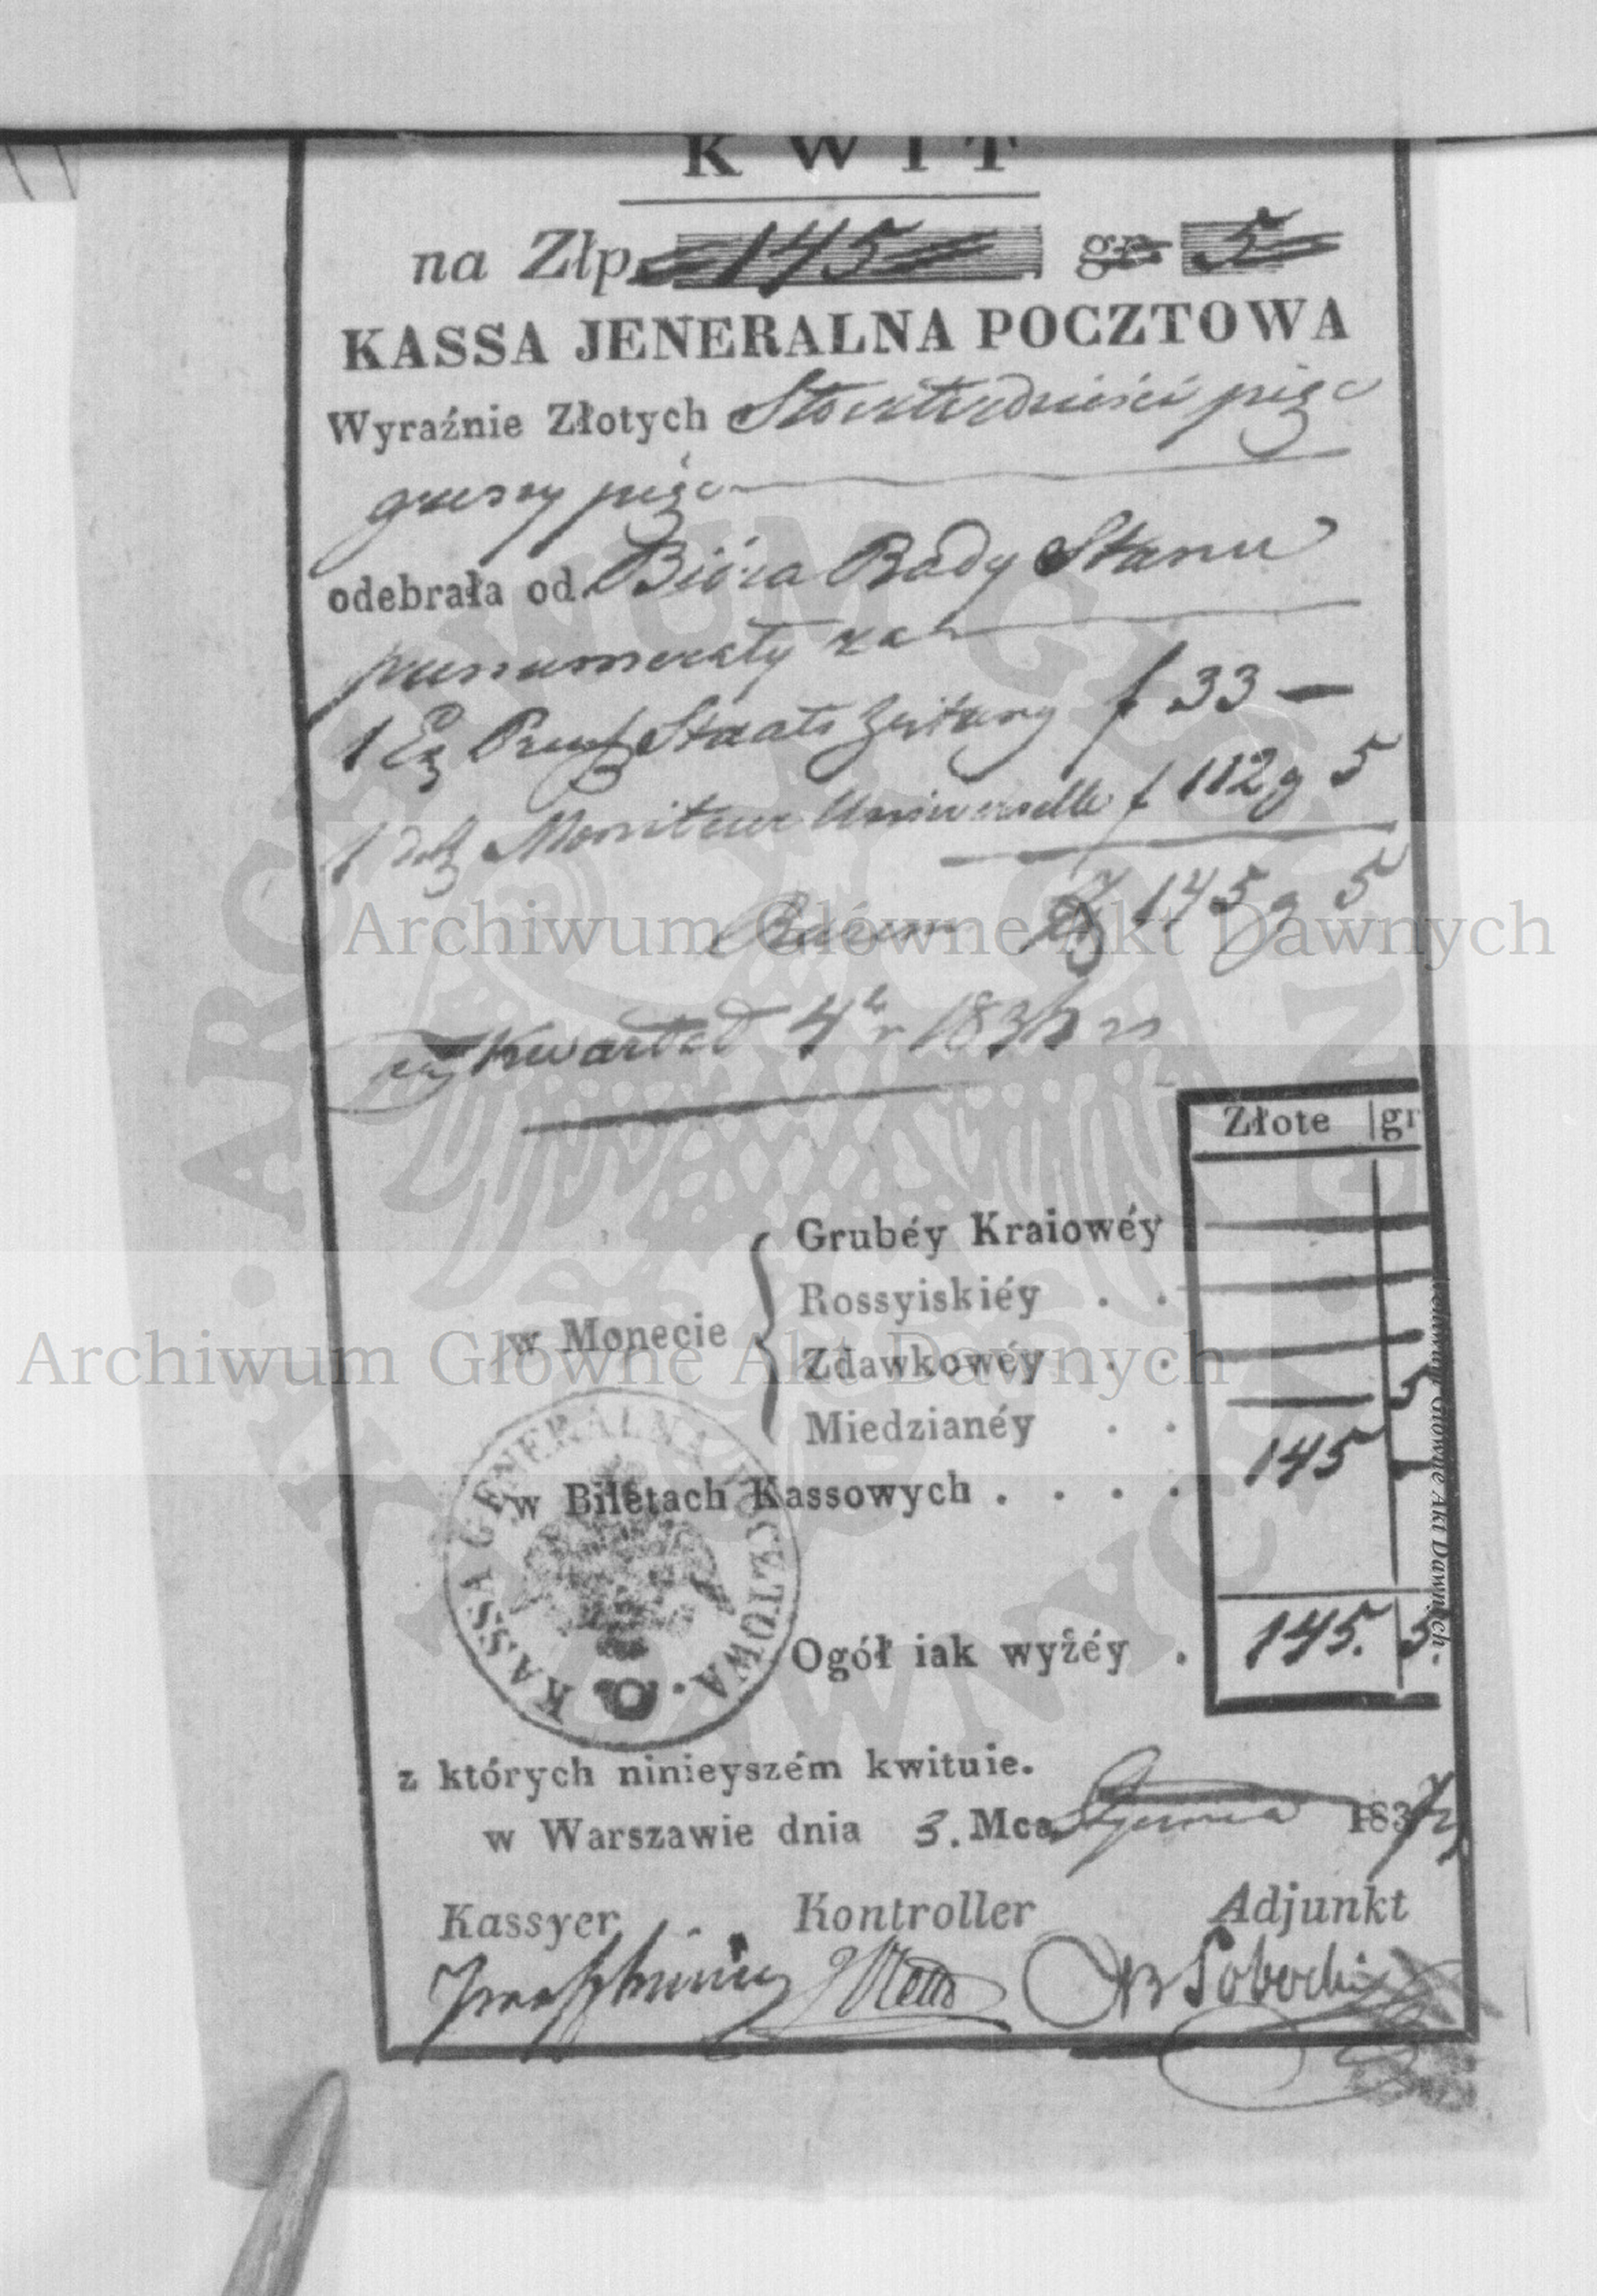 KWIT
na Złp. 145 gr. 5
KASSA JENERALNA POCZTOWA
Wyraźnie Złotych Stoczterdzieści pięć
groszy pięć
odebrała od Bióra Rady Stanu
prenumeraty za
1 Ex Preuß Staats Zeitung f 33 —
1 dtto Moniteur Universelle f 112 g 5
Razem Zł 145 g 5
Kwartał 4ty r 183
Złote gr
Grubéy Kraiowéy
Rossyiskiéy . .
w Monecie
Zdawkowéy . .
5
Miedzianéy . .
w Biletach Kassowych . . . . 145
KASSA GENERALNA POCZTOWA.
Ogół iak wyżéy . 145. 5.
z których ninieyszém kwituie.
w Warszawie dnia 3. Mca Stycznia 183
Kassyer Kontroller Adjunkt
Sobocki
Archiwum Główne Akt Dawnych
Archiwum Główne Akt Dawnych
Archiwum Główne Akt Dawnych
ARCHIWUM GŁÓWNE AKT DAWNYCH